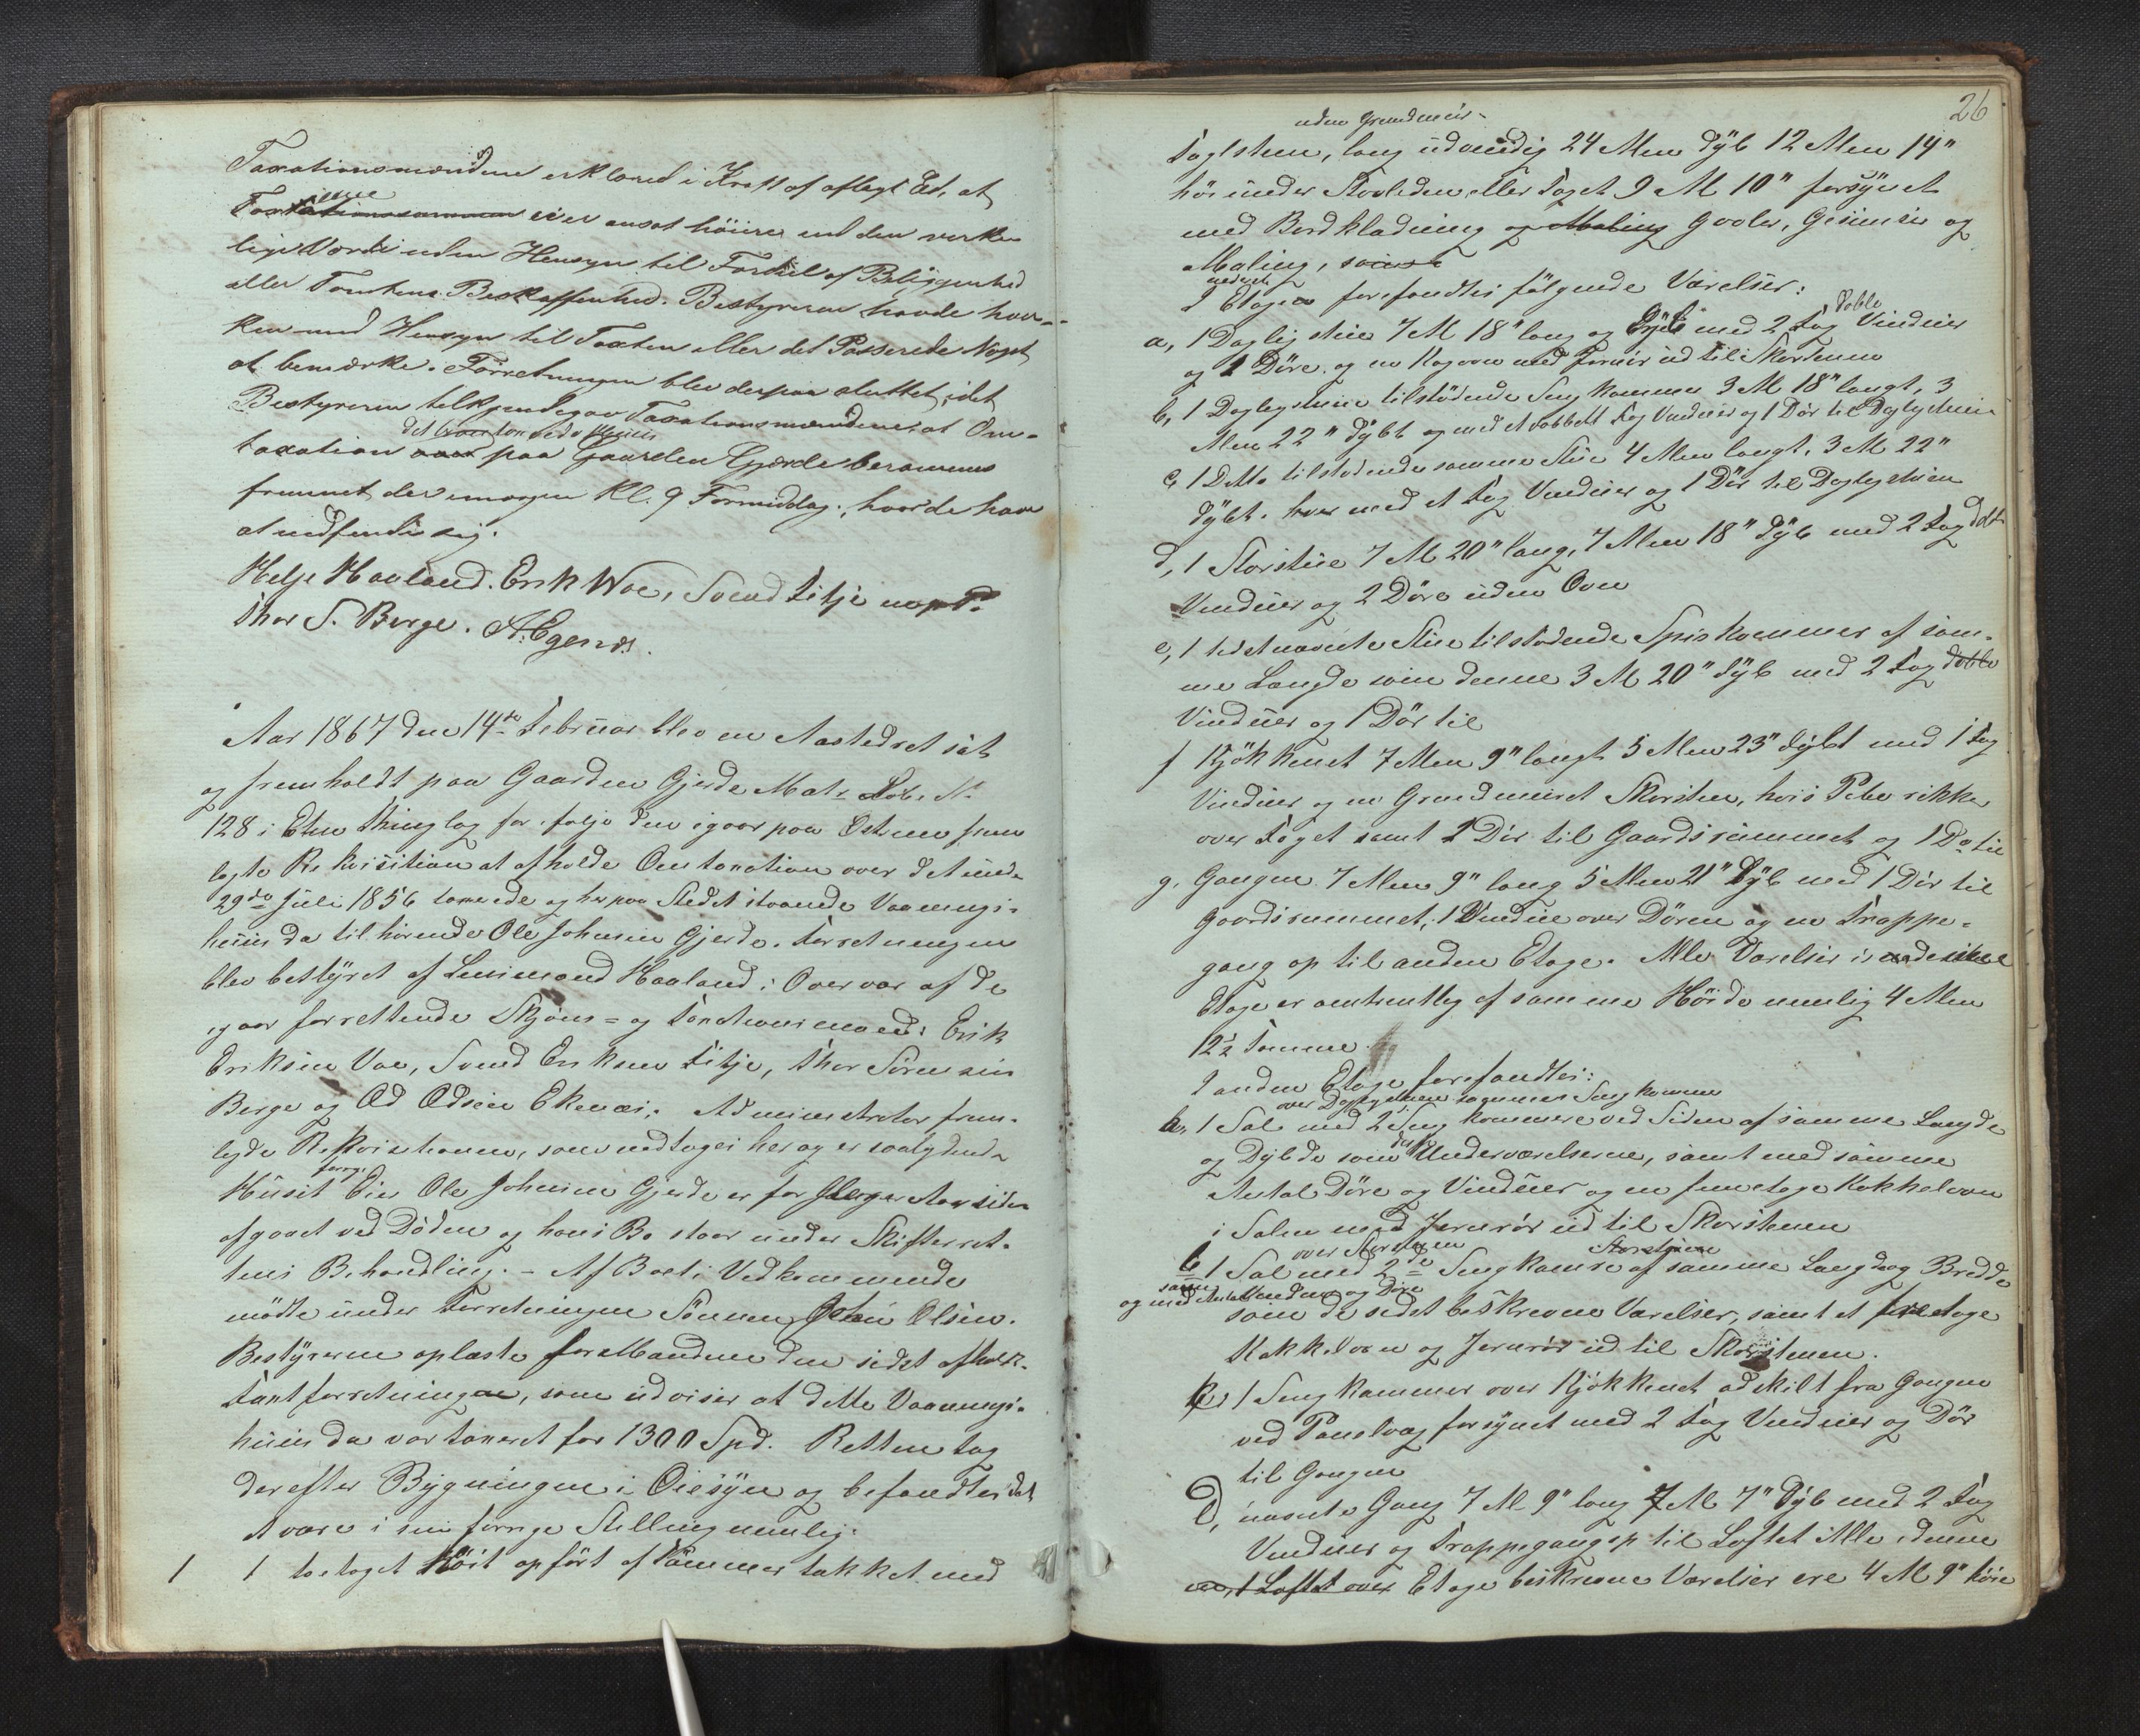 Taxationsmændene erklæred i Kraft af aflagt Ed, at
Taxterne
Taxationssummen ei er ansat høiere end den virke-
lige Værdi uden Hensyn til Fordel af Beliggenhed
eller Tomtens Beskaffenhed. Bestyreren havde hver-
ken med Hensyn til Taxten eller det Passerede Noget
at bemærke. Forretningen blev derpaa sluttet, idet
Bestyreren tilkjendegav Taxationsmændene at Om-
taxation paa Gaarden Gjerde berammes
fremmet der imorgen Kl. 9 Formiddag, hvor de have
at indfinde sig.
Helje Haaland. Erik Woe, Svend Fitje m. p. P.
Thor S. Berge. A. Egenæs.
Aar 1867 den 14de Februar blev en Aastedret sat
og fremholdt paa Gaarden Gjerde Matr. Løb. N.
128 i Etne Thinglag for ifølge den igaar paa Østreim frem
lagte Rekvisition at afholde Omtaxation over det under
29de Juli 1856 taxerede og her paa Stedet staaende Vaanings-
huus da tilhørende Ole Johnsen Gjerde. Forretningen
blev bestyret af Lensmand Haaland i Overvær af de
igaar forrettende Skjøns- og Taxationsmænd: Erik
Eriksen Vae, Svend Eriksen Fitje, Thor Sørensen
Berge og Od Odsen Ekenæs. Administrator frem-
lagde Rekvisitionen, som modtages her og er saalydende
forrige
Husets Eier Ole Johnsen Gjerde er for flere Aar siden
afgaaet ved Døden og hans Bo staar under Skifteret-
tens Behandling. - Af Boets Vedkommende
mødte under Forretningen Sønnen John Olsen.
Bestyreren oplæste for Mændene den sidst afholdte
Taxtforretningen, som udviser at dette Vaanings-
huus da var taxeret for 1300 Spd. Retten tog
derefter Bygningen i Øiesyn og befandtes det
at være i sin forrige Stilling nemlig:
1 1 toetaget Huus opført af Tømmer takket med
26
uden Grundmuur
Taglsteen, lang udvendig 24 Alen dyb 12 Alen 14"
høi under Stavleden eller Taget 9 Al 10" forsynet
med Bordklædning og Maling Gvoler, Gesimser og
Maling, samt
nederste
I Etagen forefandtes følgende Værelser:
doble
a, 1 Dagligstue 7 Al 18" lang og Dyb med 2 Fag Vinduer
og 2 Døre og en Kogovn med Jernrør ud til Skorstenen
b, 1 Dagligstuen tilstødende Sengkammer 3 Al 18" langt, 3
Alen 22" dybt og med et dobbelt Fag Vinduer og 1 Dør til Daglystuen
c, 1 Ditto tilstødende samme Stue 4 Alen langt, 3 Al 22"
dybt. hver med et Fag Vinduer og 1 Dør til Daglystuen
d, 1 Storstue 7 Al 20" lang, 7 Alen 18" dyb med 2 Fag dobl
Vinduer og 2 Døre uden Ovn
e, 1 sidstnævnte Stue tilstødende Spiskammer af sam-
me Længde som denne 3 Al 20" dyb med 2 Fag doble
Vinduer og 1 Dør til
f Kjøkkenet 7 Alen 9" langt 5 Alen 23" dybt med 1 Fag
Vinduer og en Grundmuret Skorsten, hvis Pibe rikker
over Taget samt 1 Dør til Gaardsrummet og 1 Do til
g, Gangen 7 Alen 9" lang 5 Alen 21" dyb med 1 Dør til
Gaardsrummet, 1 Vindue over Døren og en Trappe-
gang op til anden Etage. Alle Værelser i nederste
Etage er omtrentlig af samme Høide nemlig 4 Alen
12½ Tomme.
I anden Etage forefandtes:
over Daglystuen
a, 1 Sal med 2 Sengkammere ved Siden af samme Længde
og Dybde som Underværelserne, samt med samme
Antal Døre og Vinduer og en femetage Kakkelovn
i Salen med Jernrør ud til Skorstenen
over Storstuen Storstuen
b 1 Sal med 2de Sengkamre af samme Længde og Bredde
samme
og med Antal Vinduer og Døre
som de sidst beskrevne Værelser, samt et etage
Kakkelovn og Jernrør ud til Skorstenen.
c, 1 Sengkammer over Kjøkkenet adskilt fra Gangen
ved Panelvæg forsynet med 2 Fag Vinduer og Dør
til Gangen
D, nævnte Gang 7 Al 9" lang 7 Al 7" dyb med 2 Fag
Vinduer og Trappegang op til Loftet Alle i denne
Loftet over Etage beskrevne Værelser ere 4 Al 9" høie